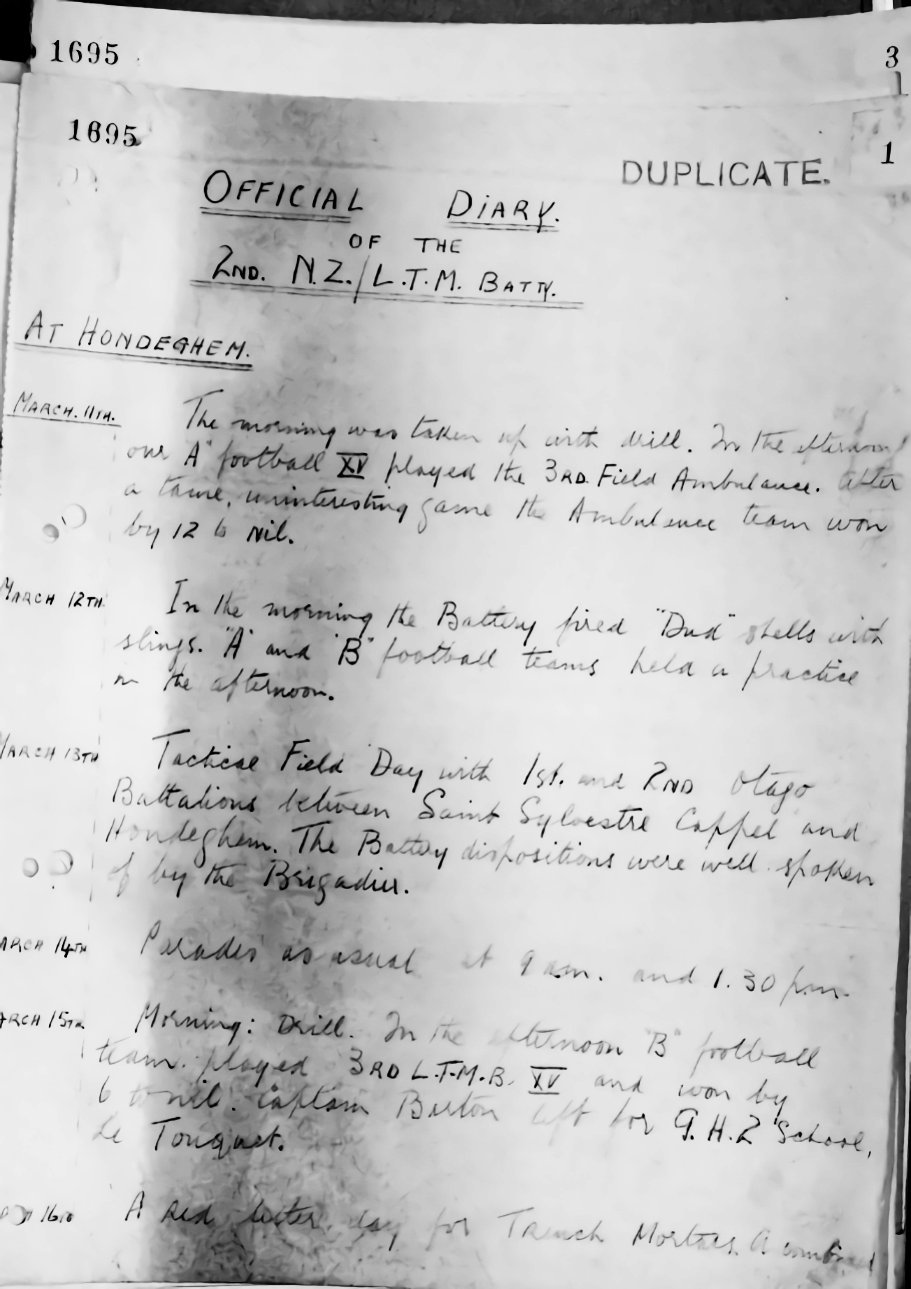 1695
3
1695
DUPLICATE.
1
OFFICIAL DIARY.
OF THE
2ND. N.Z./L.T.M. BATTY.
AT HONDEGHEM.
MARCH. 11TH. The morning was taken up with drill. In the afternoon
our "A" football XV played the 3RD. Field Ambulance. After
a tame, uninteresting game the Ambulance team won
by 12 to Nil.
MARCH 12TH. In the morning the Battery fired "Dud" shells with
slings. "A" and "B" football teams held a practice
in the afternoon.
MARCH 13TH Tactical Field Day with 1st. and 2ND Otago
Battalions between Saint Sylvestre Cappel and
Hondeghem. The Battery dispositions were well spoken
of by the Brigadier.
ARCH 14TH Parades as usual at 9 am. and 1.30 p.m.
ARCH 15TH Morning: Drill. In the afternoon "B" football
team played 3RD L.T.M.B. XV and won by
6 to nil. Captain left for G.H.Q School,
Le Touquet.
16TH A red letter day for Trench Mortars. A combined